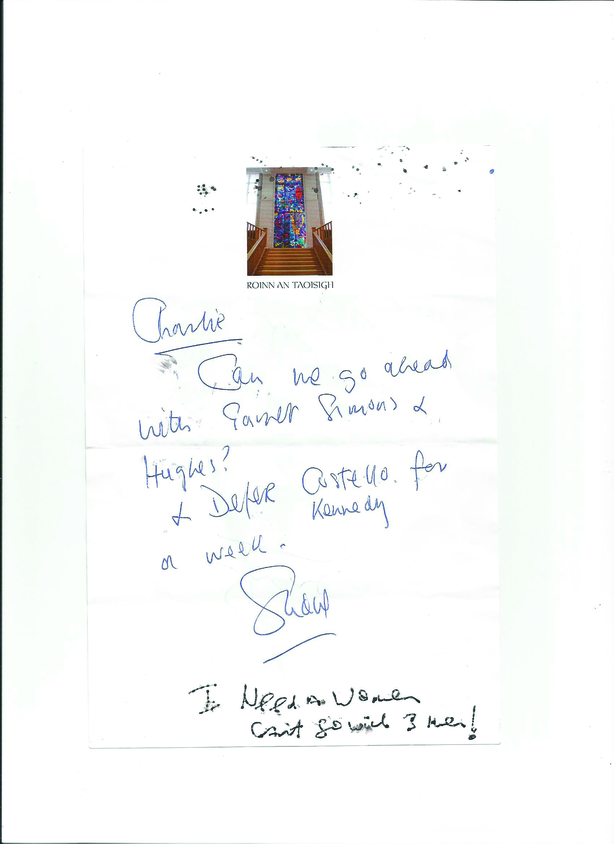 ROINN AN TAOISIGH
Charlie
Can we go ahead
with Garret Simons &
Hughes?
& Defer Costello. for
Kennedy
a week.
Shane
I Need a Women
Can't go with 3 Men!